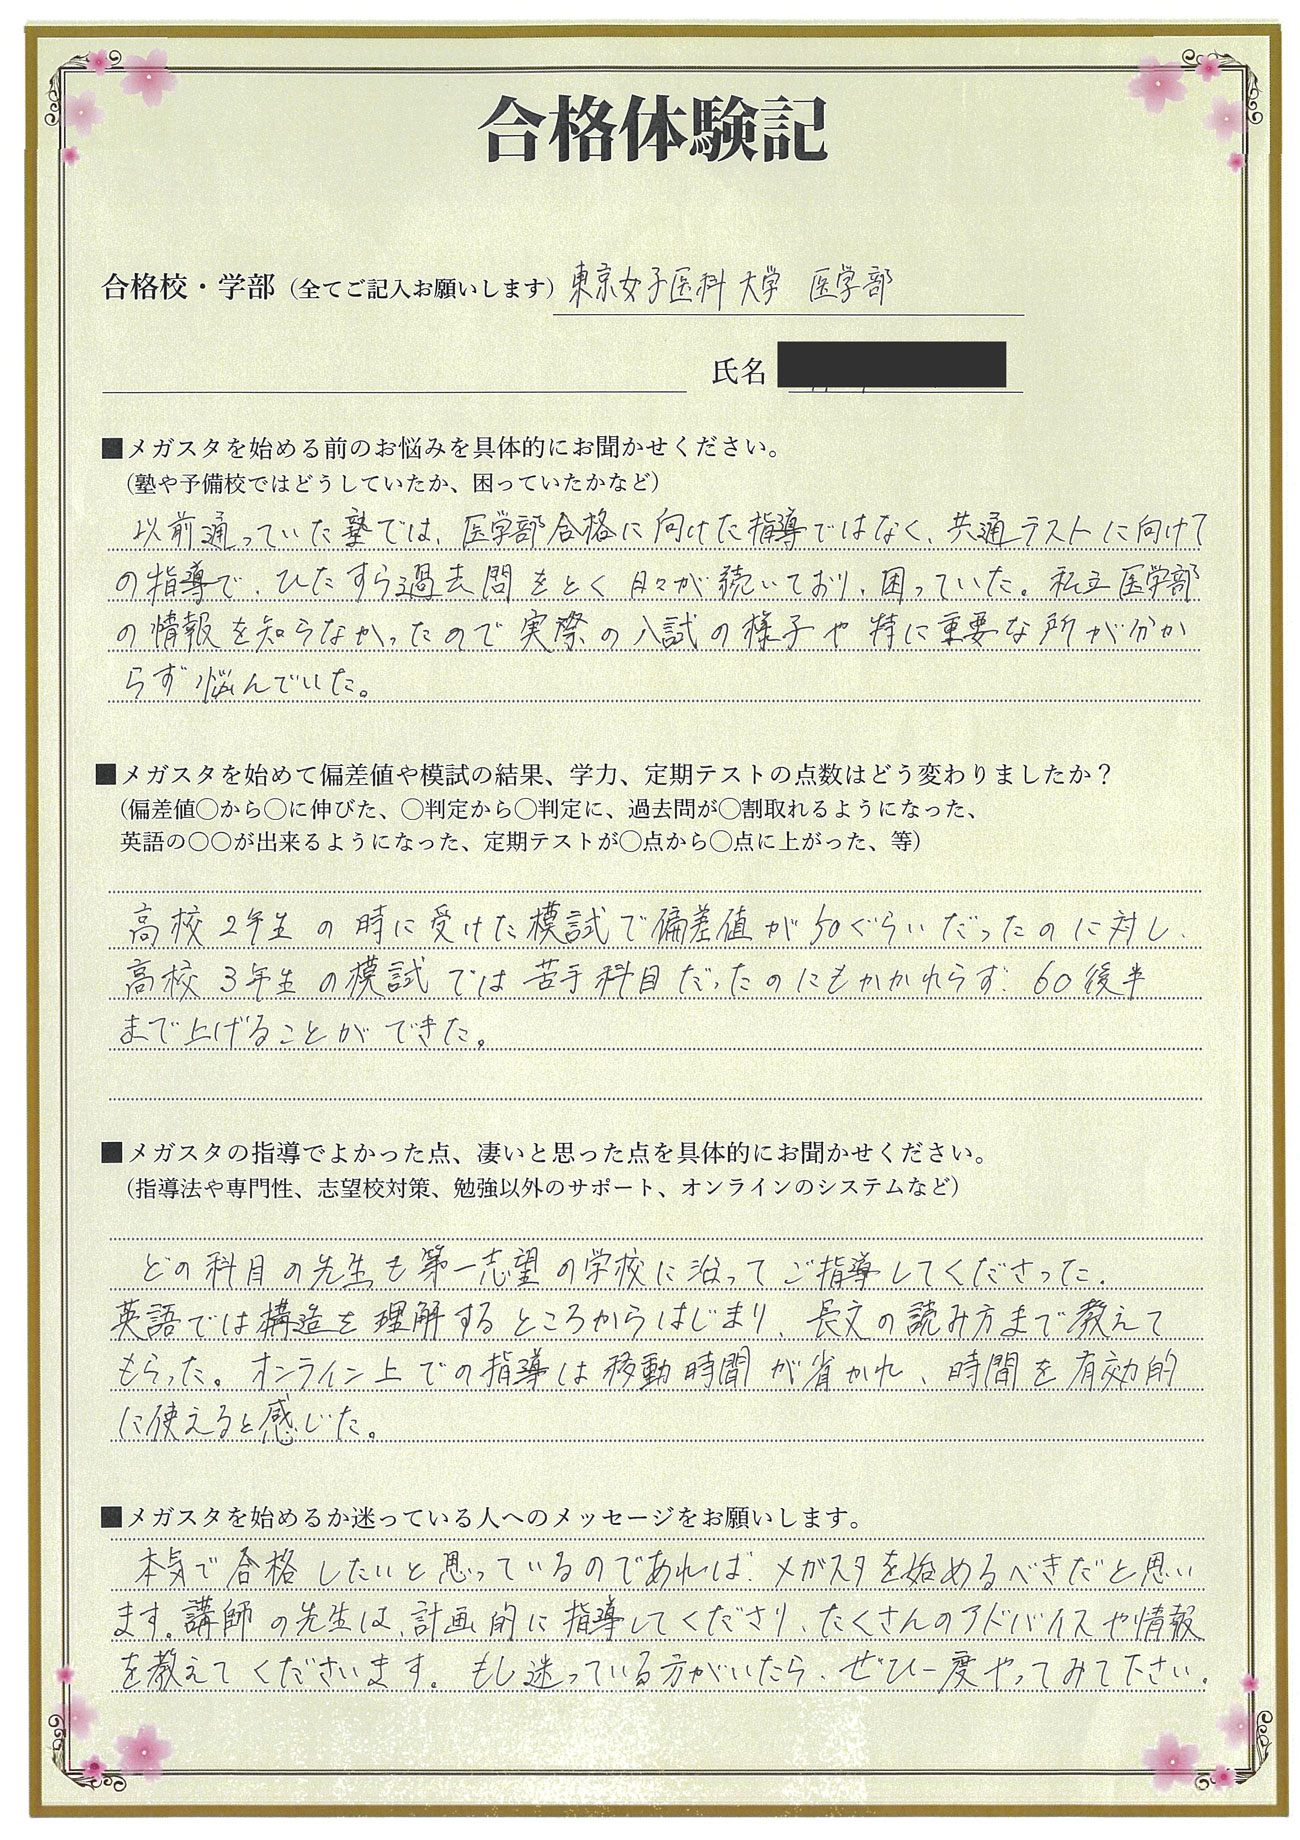 合格体験記
合格校・学部（全てご記入お願いします）東京女子医科大学 医学部
氏名
■メガスタを始める前のお悩みを具体的にお聞かせください。
（塾や予備校ではどうしていたか、困っていたかなど）
以前通っていた塾では、医学部合格に向けた指導ではなく、共通テストに向けて
の指導で、ひたすら過去問をとく日々が続いており、困っていた。私立医学部
の情報を知らなかったので実際の入試の様子や特に重要な所が分か
らず悩んでいた。
■メガスタを始めて偏差値や模試の結果、学力、定期テストの点数はどう変わりましたか？
（偏差値〇から〇に伸びた、〇判定から〇判定に、過去問が〇割取れるようになった、
英語の〇〇が出来るようになった、定期テストが〇点から〇点に上がった、等）
高校2年生の時に受けた模試で偏差値が50ぐらいだったのに対し、
高校3年生の模試では苦手科目だったのにもかかわらず、60後半
まで上げることができた。
■メガスタの指導でよかった点、凄いと思った点を具体的にお聞かせください。
（指導法や専門性、志望校対策、勉強以外のサポート、オンラインのシステムなど）
どの科目の先生も第一志望の学校に沿ってご指導してくださった。
英語では構造を理解するところからはじまり、長文の読み方まで教えて
もらった。オンライン上での指導は移動時間が省かれ、時間を有効的
に使えると感じた。
■メガスタを始めるか迷っている人へのメッセージをお願いします。
本気で合格したいと思っているのであれば、メガスタを始めるべきだと思い
ます。講師の先生は、計画的に指導してくださり、たくさんのアドバイスや情報
を教えてくださいます。もし迷っている方がいたら、ぜひ一度やってみて下さい。